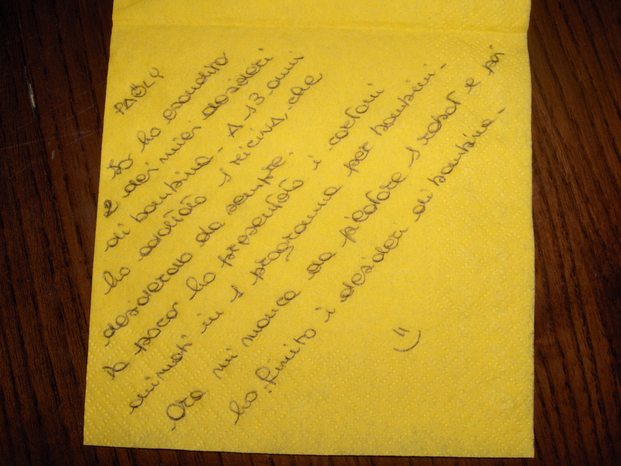 PAOLY
Io ho esaudito
2 dei miei desideri
di bambina - A 13 anni
ho adottato 1 che
desideravo da sempre.
Da poco ho presentato i cartoni
animati in 1 programma per bambini -
Ora mi manca da pilotare 1 robot e poi
ho finito i desideri di bambina -
=)